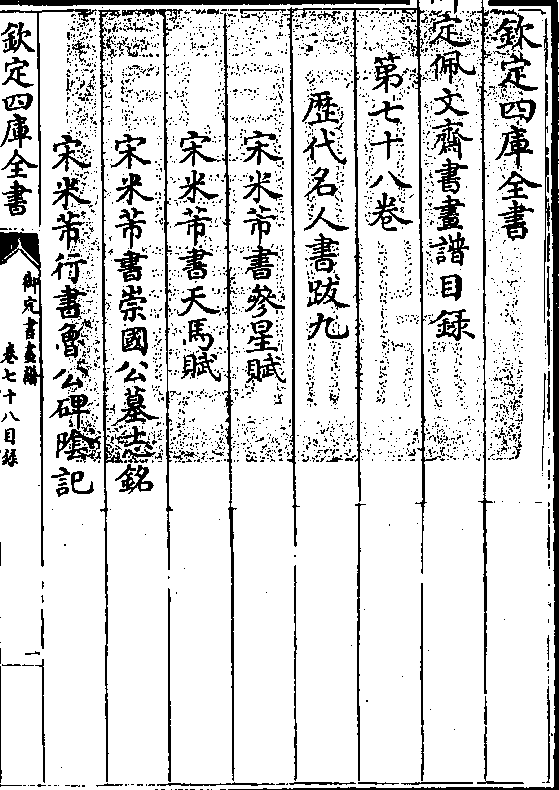 欽定四庫全書
定佩文齋書畫譜目録
第七十八卷
歴代名人書跋九
宋米芾書參星賦
宋米芾書天馬賦
宋米芾書崇國公墓志銘
宋米芾行書魯公碑隂記
欽定四庫全書
御定書畫譜
卷七十八目録
一